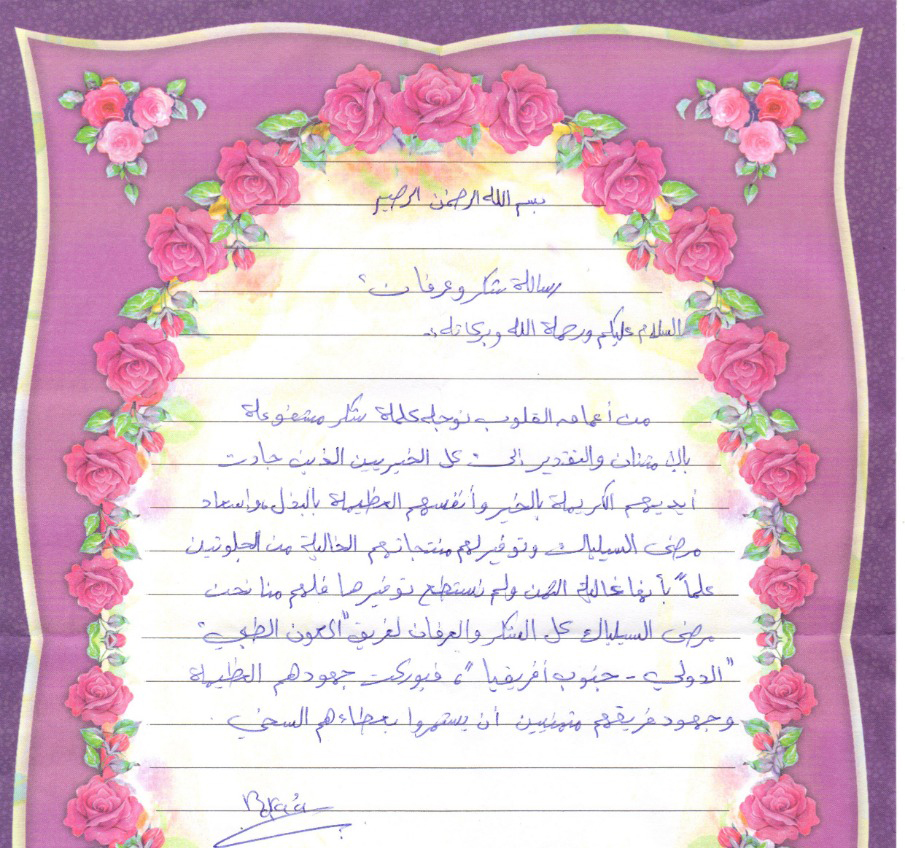 بسم الله الرحمن الرحيم
رسالة شكر وعرفان
السلام عليكم ورحمة الله وبركاته
من أعماق القلوب نوجه كلمة شكر مشفوعة
بالإمتنان والتقدير إلى كل الخيريين الذين جادت
أيديهم الكريمة بالخير وأنفسهم العظيمة بالبذل واسعاد
مرضى السيلياك وتوفيرلهم منتجاتهم الخالية من الجلوتين
علماً بأنها غالية الثمن ولم نستطع توفيرها فلهم منا نحن
مرضى السيلياك كل الشكر والعرفان لفريق "العون الطبي"
"الدولي - جنوب أفريقيا"، فبوركت جهودهم العظيمة
وجهود فريقهم متمنيين أن يستمروا بعطاءهم السخي.
Bara'a